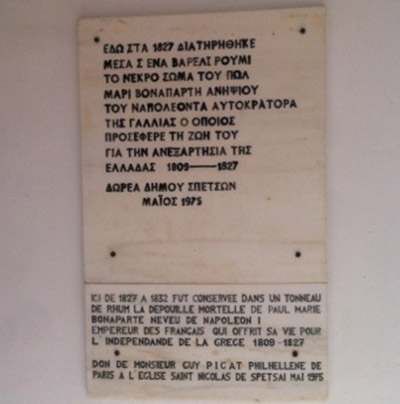 ΕΔΩ ΣΤΑ 1827 ΔΙΑΤΗΡΗΘΗΚΕ
ΜΕΣΑ Σ ΕΝΑ ΒΑΡΕΛΙ ΡΟΥΜΙ
ΤΟ ΝΕΚΡΟ ΣΩΜΑ ΤΟΥ ΠΩΛ
ΜΑΡΙ ΒΟΝΑΠΑΡΤΗ ΑΝΗΨΙΟΥ
ΤΟΥ ΝΑΠΟΛΕΟΝΤΑ ΑΥΤΟΚΡΑΤΟΡΑ
ΤΗΣ ΓΑΛΛΙΑΣ Ο ΟΠΟΙΟΣ
ΠΡΟΣΕΦΕΡΕ ΤΗ ΖΩΗ ΤΟΥ
ΓΙΑ ΤΗΝ ΑΝΕΞΑΡΤΗΣΙΑ ΤΗΣ
ΕΛΛΑΔΑΣ 1809—1827
ΔΩΡΕΑ ΔΗΜΟΥ ΣΠΕΤΣΩΝ
ΜΑΪΟΣ 1975
ICI DE 1827 A 1832 FUT CONSERVEE DANS UN TONNEAU
DE RHUM LA DEPOUILLE MORTELLE DE PAUL MARIE
BONAPARTE NEVEU DE NAPOLEON I
EMPEREUR DES FRANÇAIS QUI OFFRIT SA VIE POUR
L'INDEPENDANDE DE LA GRECE 1809-1827
DON DE MONSIEUR GUY PICAT PHILHELLENE DE
PARIS A L'EGLISE SAINT NICOLAS DE SPETSAI MAI 1975